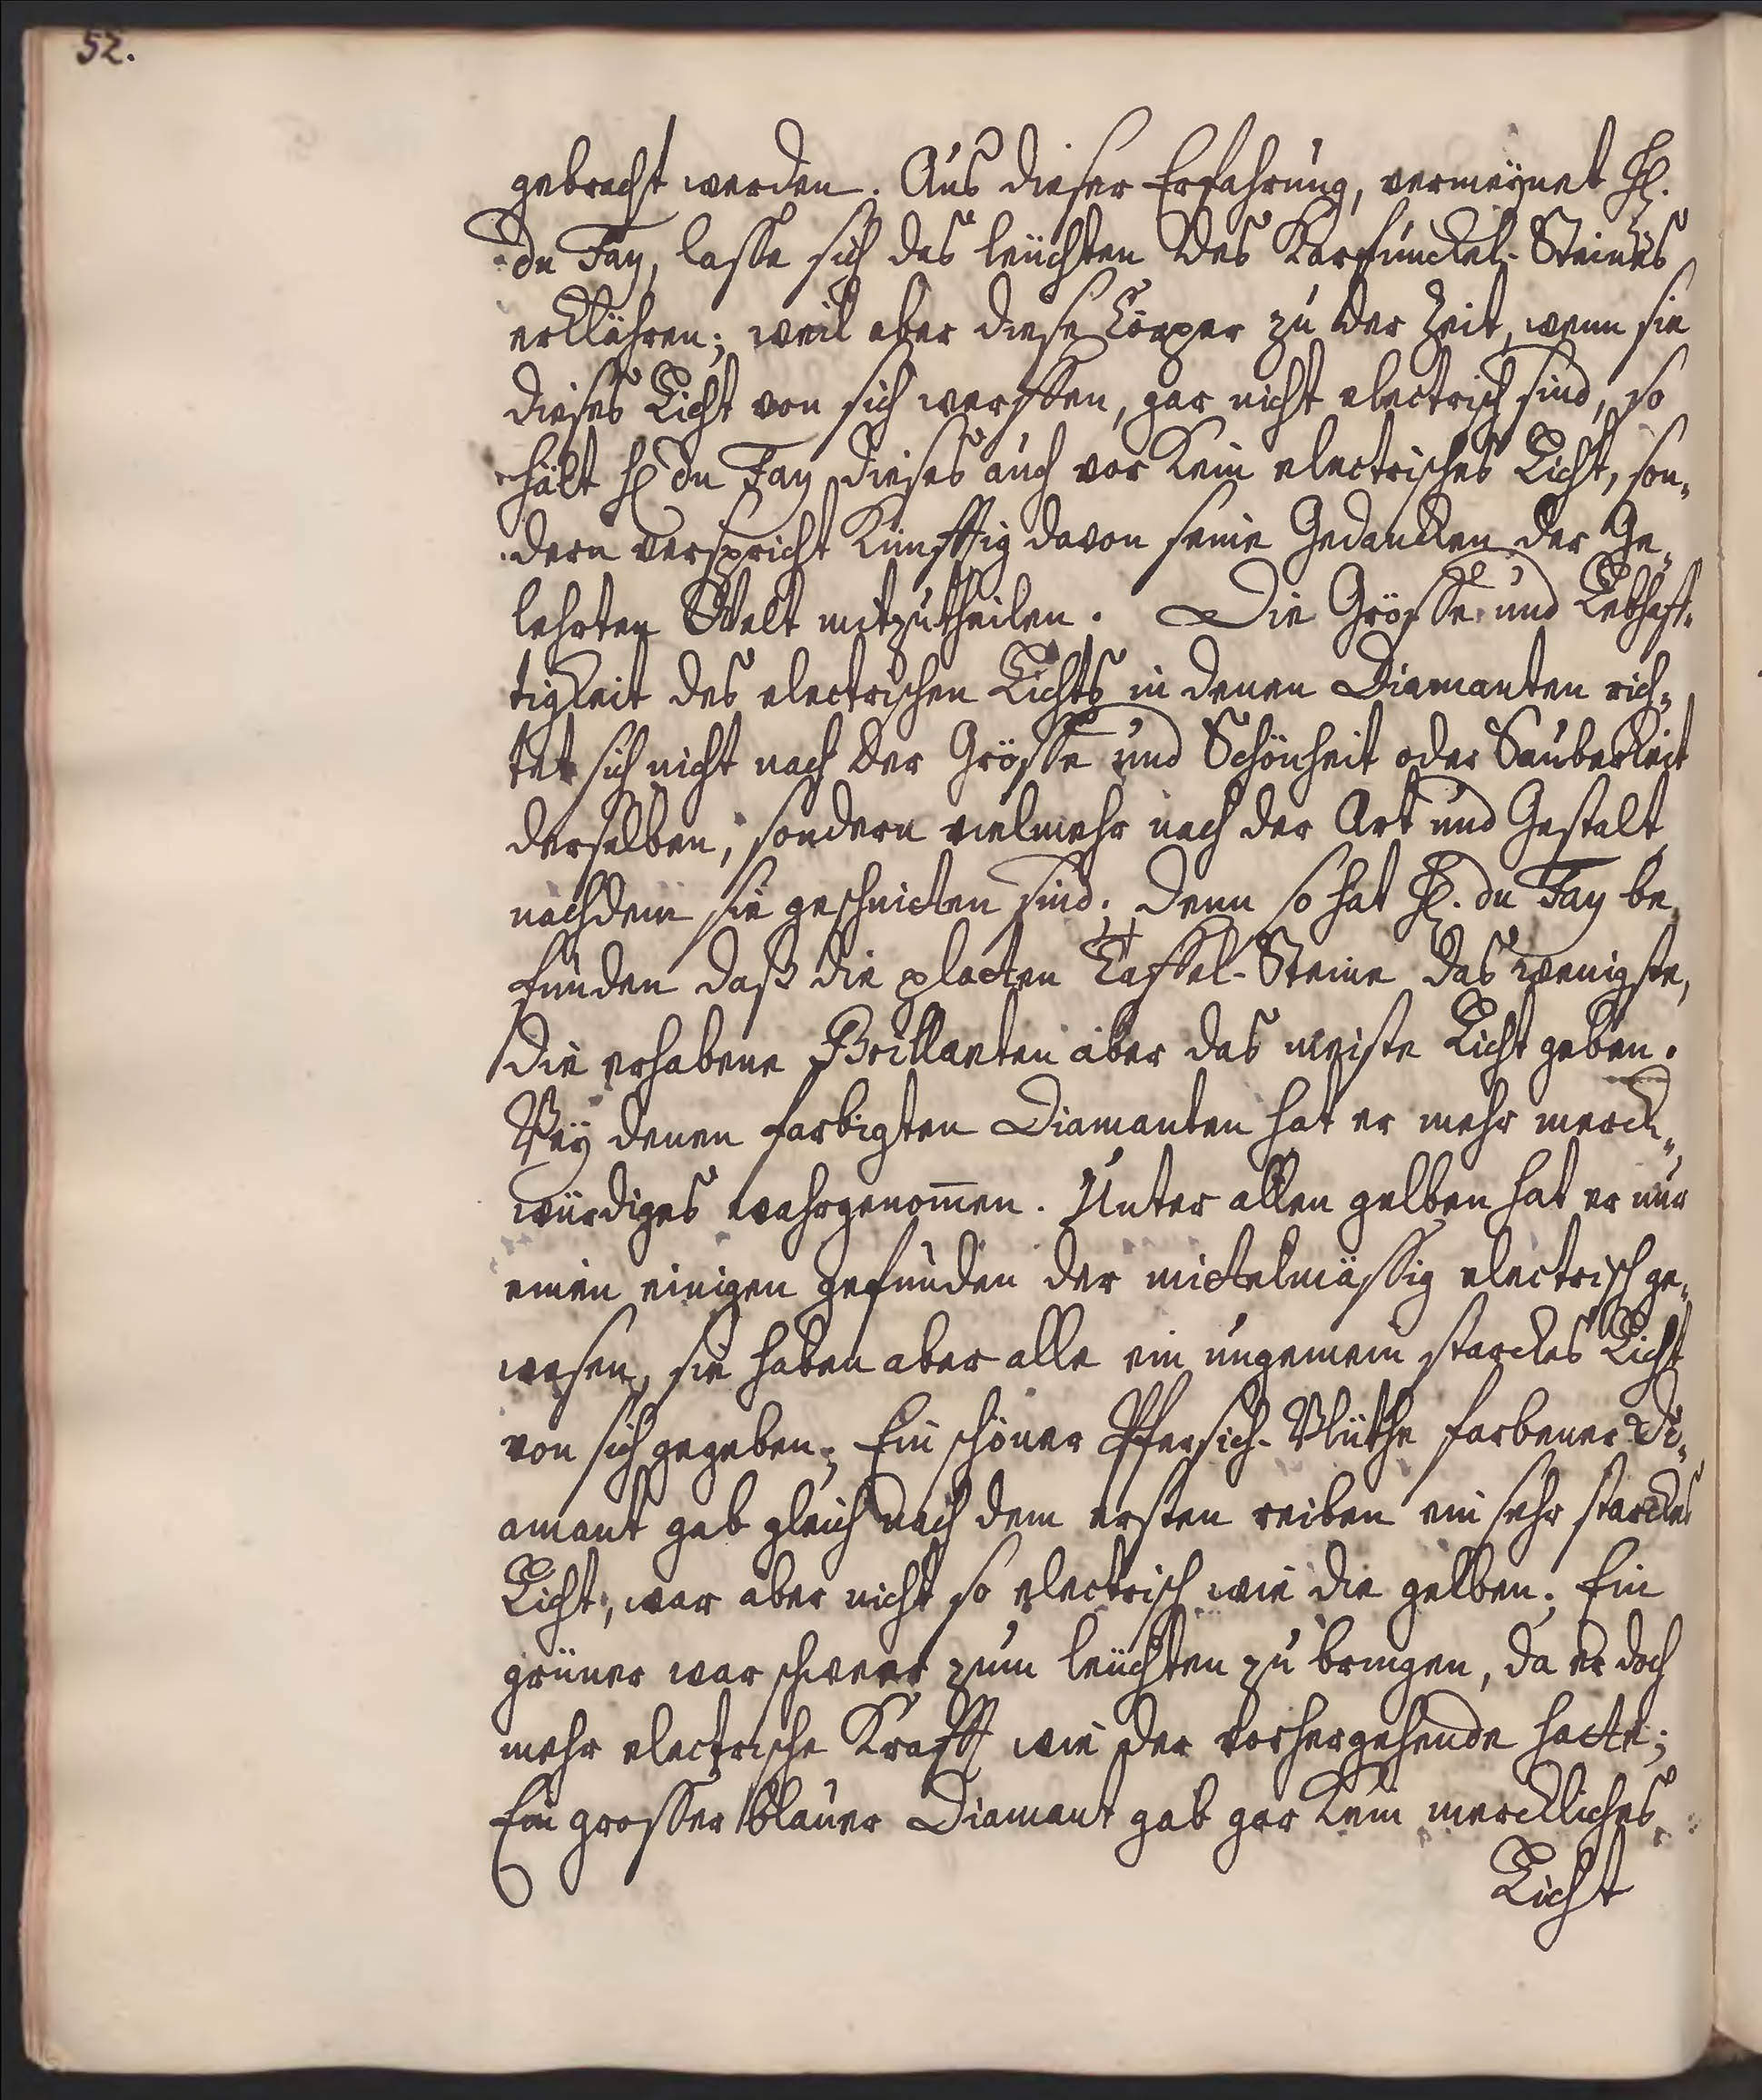 52.
gebracht werden. Aus dieser Erfahrung, vermeÿnet H.
du Fay, lasse sich das leüchten des Karfunckel-Steines
erklähren; weil aber diese Cörper zu der Zeit, wenn sie
dieses Licht von sich werffen, gar nicht electrisch sind, so
hält H du Fay dieses auch vor kein electrisches Licht, son„
dern verspricht künfftig davon seine Gedancken der Ge„
lehrten Welt mitzutheilen. Die Grösse und Lebhaff„
tigkeit des electrischen Lichts in denen Diamanten rich„
tet sich nicht nach der Grösse und Schönheit oder Sauberkeit
derselben, sondern vielmehr nach der Art und Gestalt
nachdem sie geschnitten sind; denn so hat H. du Fay be„
funden daß die platten Taffel-Steine das wenigste,
die erhabene Brillanten aber das meiste Licht geben.
Beÿ denen farbigten Diamanten hat er mehr merck„
würdiges wahrgenom̄en. Unter allen gelben hat er nur
einen einigen gefunden der mittelmässig electrisch ge„
wesen, sie haben aber alle ein ungemein starckes Licht
von sich gegeben; Ein schöner Pfersich-Blüthe farbener Di„
amant gab gleich nach dem ersten reiben ein sehr starckes
Licht, war aber nicht so electrisch wie die gelben; Ein
grüner war schwer zum leüchten zu bringen, da er doch
mehr electrische Krafft wie der vorhergehende hatte;
Ein grosser blauer Diamant gab gar kein merckliches
Licht